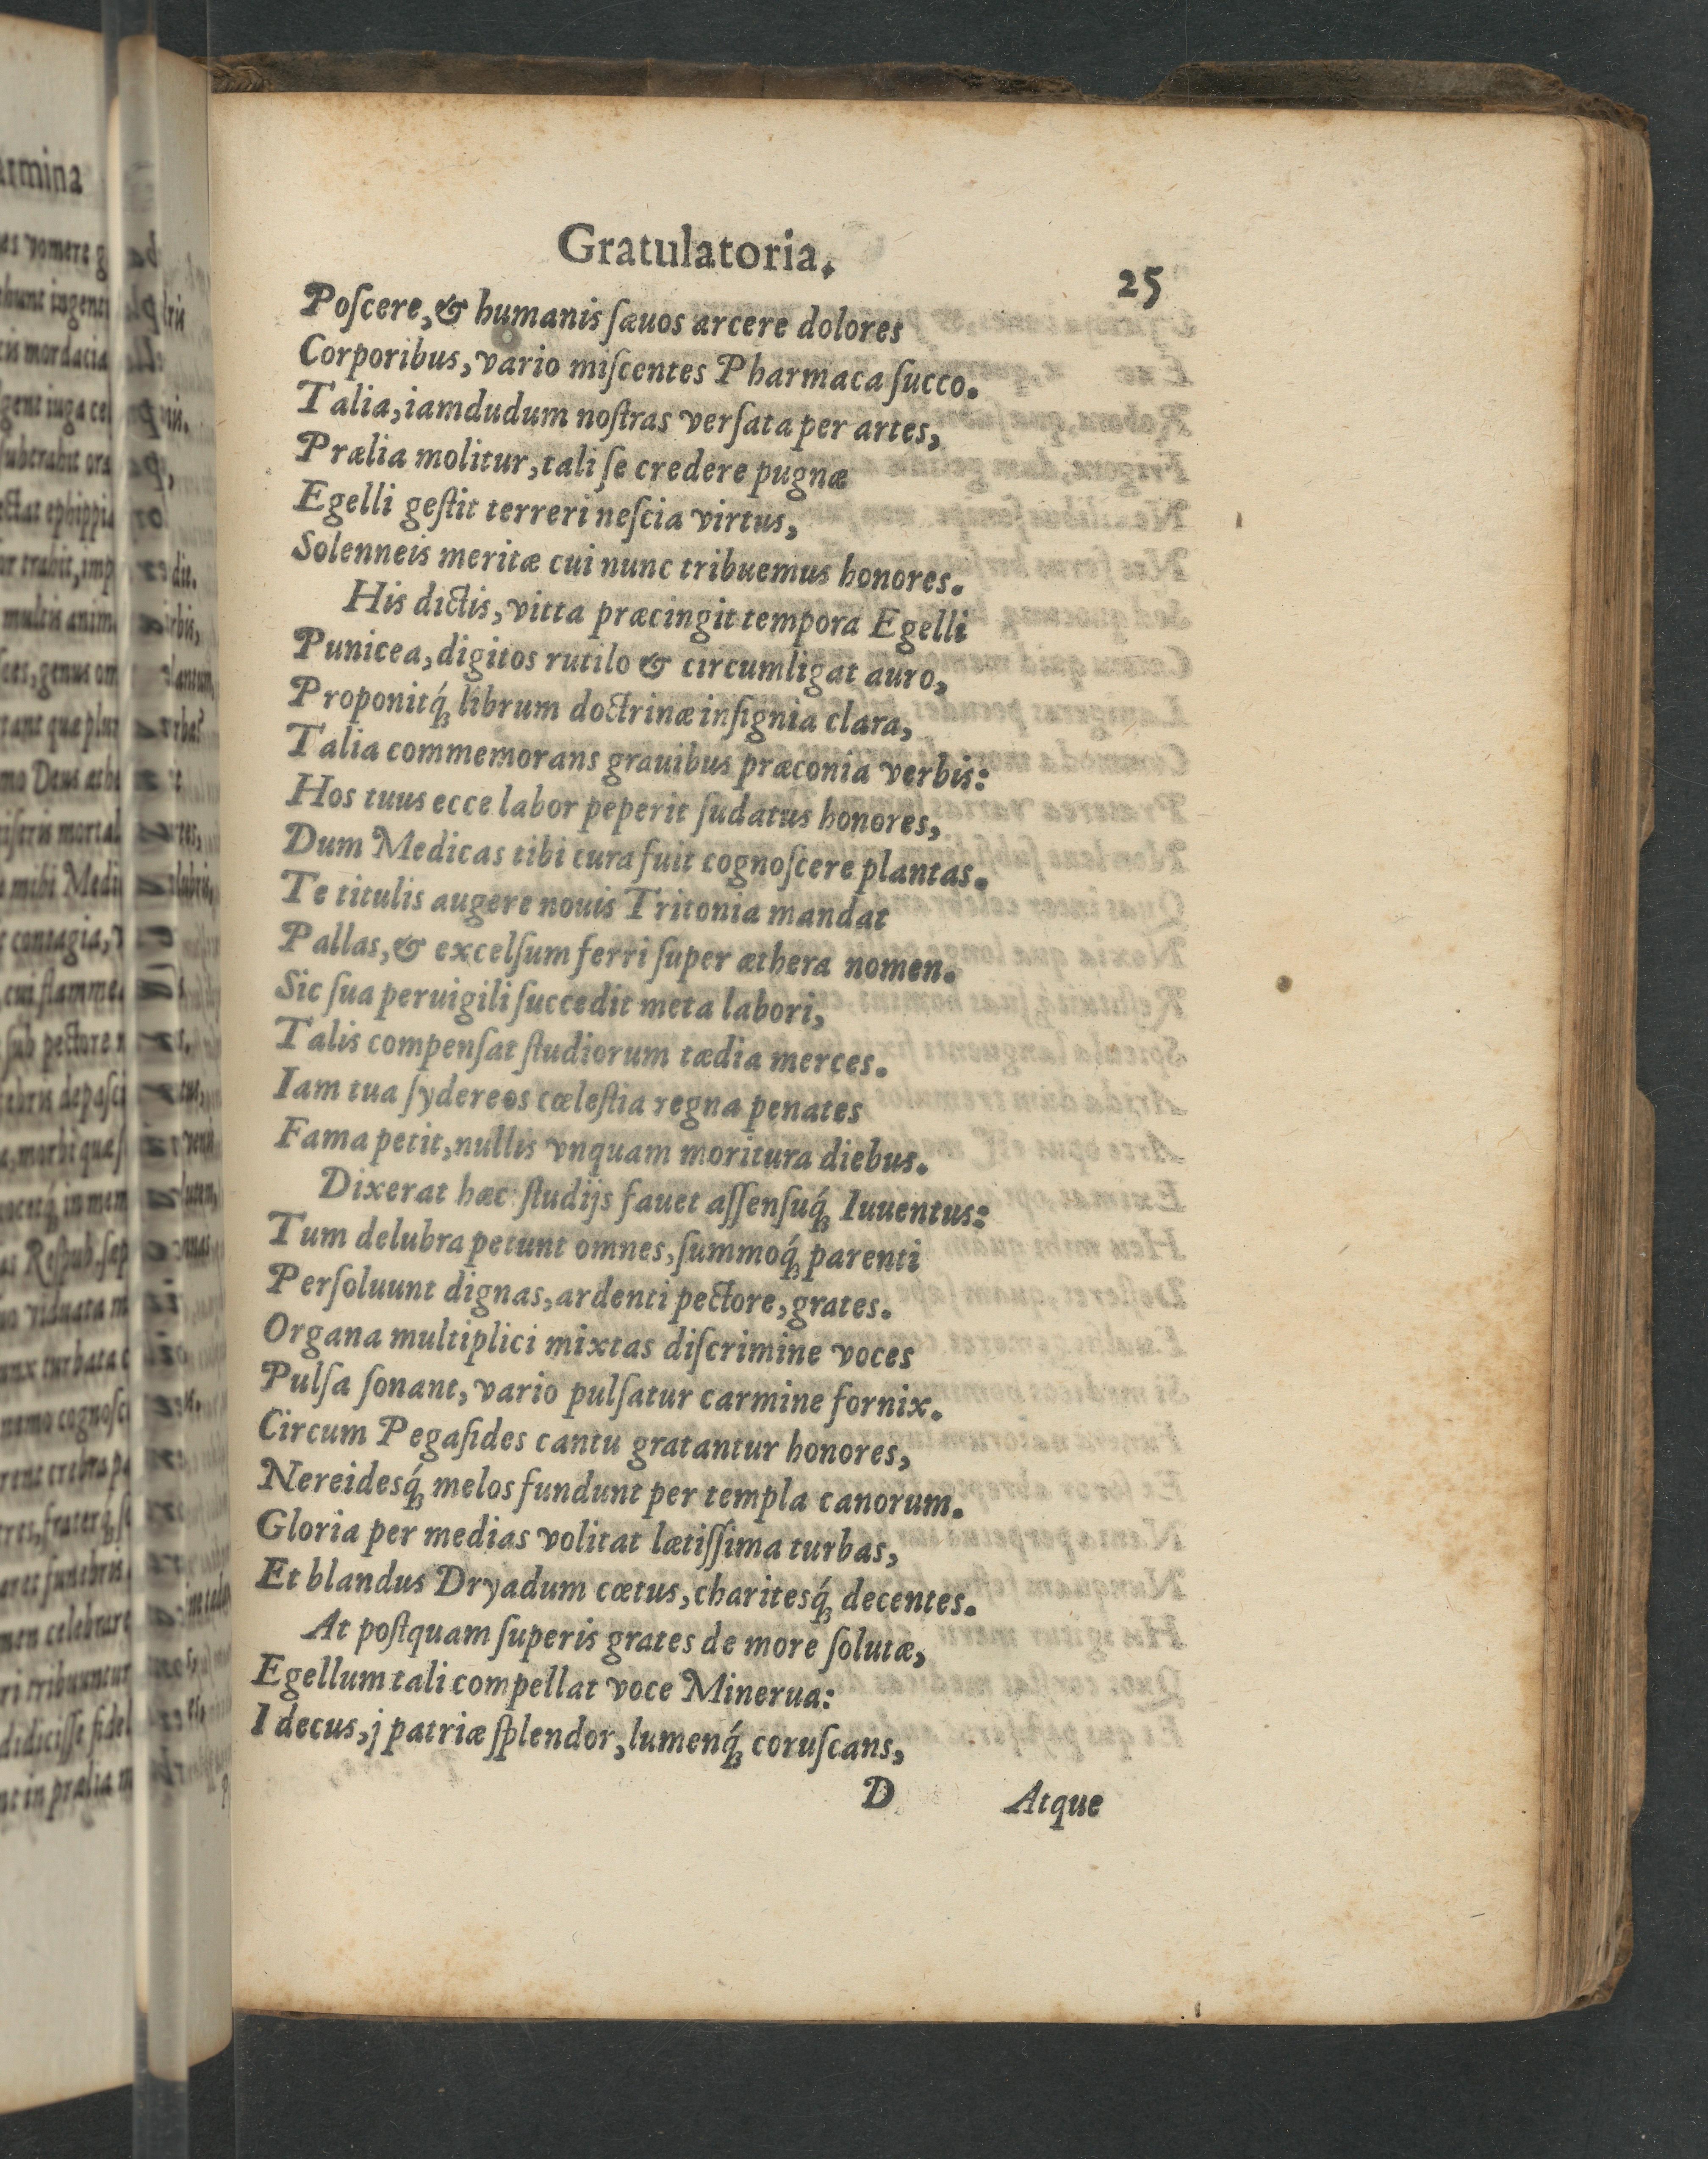 Gratulatoria.
25
Poſcere, & humanis ſæuos arcere dolores
Corporibus, vario miſcentes Pharmaca ſucco.
Talia, iamdudum noſtras verſata per artes,
Prælia molitur, tali ſe credere pugnæ
Egelli geſtit terreri neſcia virtus,
Solenneis meritæ cui nunc tribuemus honores.
His dictis, vitta præcingit tempora Egelli
Punicea, digitos rutilo & circumligat auro,
Proponitq́ꝫ librum doctrinæ inſignia clara,
Talia commemorans grauibus præconia verbis:
Hos tuus ecce labor peperit ſudatus honores,
Dum Medicas tibi cura fuit cognoſcere plantas.
Te titulis augere nouis Tritonia mandat
Pallas, & excelſum ferri ſuper æthera nomen.
Sic ſua peruigili ſuccedit meta labori,
Talis compenſat ſtudiorum tædia merces.
Iam tua ſydereos cœleſtia regna penates
Fama petit, nullis vnquam moritura diebus.
Dixerat hæc: ſtudijs fauet aſſenſuq́ꝫ Iuuentus:
Tum delubra petunt omnes, ſummoq́ꝫ parenti
Perſoluunt dignas, ardenti pectore, grates.
Organa multiplici mixtas diſcrimine voces
Pulſa ſonant, vario pulſatur carmine fornix.
Circum Pegaſides cantu gratantur honores,
Nereidesq́ꝫ melos fundunt per templa canorum.
Gloria per medias volitat lætiſſima turbas,
Et blandus Dryadum cœtus, charitesq́ꝫ decentes.
At poſtquam ſuperis grates de more ſolutæ,
Egellum tali compellat voce Minerua:
I decus, j patriæ ſplendor, lumenq́ꝫ coruſcans,
D
Atque